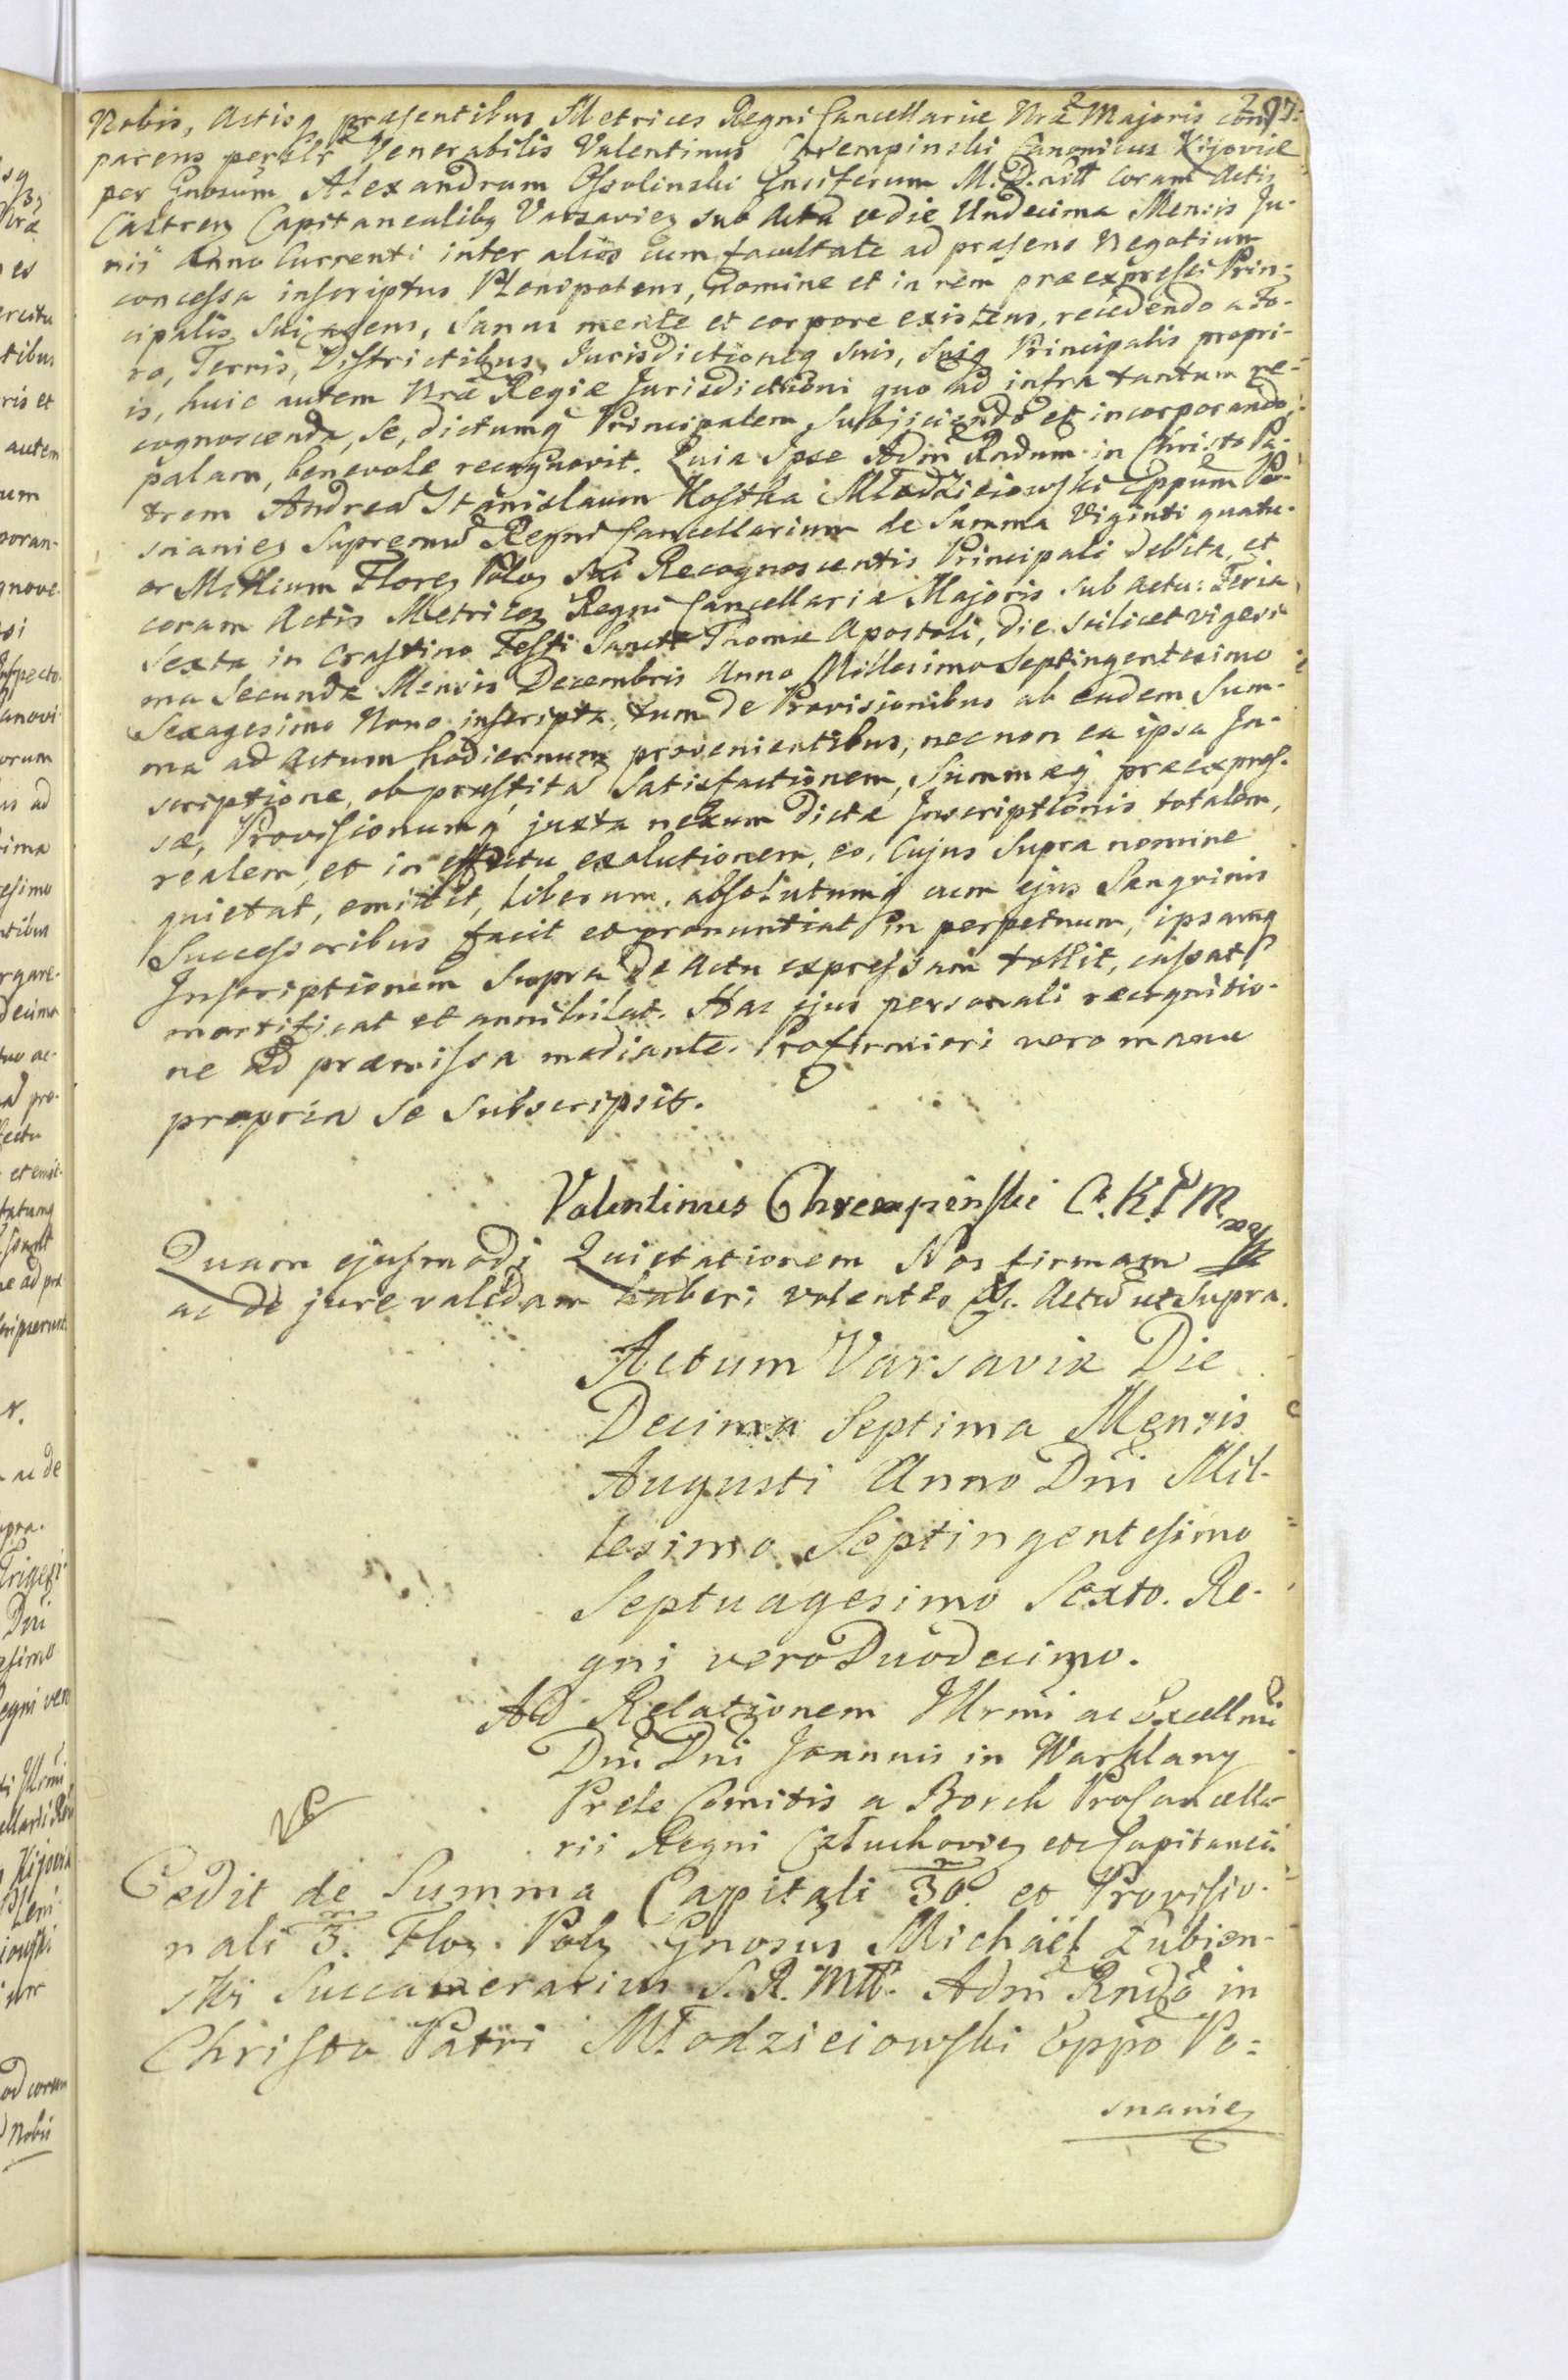 Nobis, Actisq praesentibus Metrices Regni Cancellariae Nrae Majoris com
parens perslr Venerabilis Valentinus Chrempinski Canonicus Kijoviae
per Gnosum Alexandrum Ossolinski Ensiferum M. D. Litt coram Actis
Castren Capitanealibq Varsavien sub Actu et die Undecima Mensis Ju-
nii Anno Currenti inter alios cum facultate ad praesens Negotium
concessa inscriptus Plenipotens, nomine et in rem praeexpressi Prin-
cipalis Sui agens, Sanus mente et corpore existens, recedendo a Fo-
ro, Terris, Districtibus, Jurisdictioneq suis, Suiq Principalis propri-
is, huic autem Nrae Regiae Jurisdictioni quo ad infra tantum re-
cognoscenda, Se, dictumq Principalem Subjiciendo et incorporando,
palam, benevole recognovit. Quia Ipse Adm Rndum in Christo Pa-
trem Andream Stanislaum Kostka Młodzieiowski Eppum Po-
snanien Supremum Regni Cancellarium de Summa Viginti quatu-
or Millium Floren Polon Sui Recognoscentis Principali debita, et
coram Actis Metrices Regni Cancellariae Majoris sub Actu: Feria
Sexta in Crastino Festi Sancti Thomae Apostoli, die scilicet vigesi
ma Secunda Mensis Decembris Anno Millesimo Septingentesimo
Sexagesimo Nono inscripta, tum de Provisionibus ab eadem Sum-
ma ad Actum hodiernum provenientibus, necnon ea ipsa In-
scriptione, ob praestitam Satisfactionem, Summaeq praeexpres-
sae, Provisionumq juxta nexum dictae Inscriptionis totalem,
realem, et in effectu exolutionem, eo, Cujus Supra nomine
quietat, emittit, liberum, absolutumq cum ejus Sangvinis
Successoribus facit et pronuntiat in perpetuum, ipsamq
Inscriptionem Supra de Actu expressam tollit, cassat,
mortificat et annihilat. Hac ejus personali recognitio-
ne ad praemissa mediante. Pro firmiori vero manu
propria se subscripsit.
Valentinus Chrempinski C. K. P. M
Quam ejusmodi Quietationem Nos firmam
ac de jure validam haberi volentes &. Actu ut Supra.
Actum Varsaviae Die
Decima Septima Mensis
Augusti Anno Dni Mil-
lesimo Septingentesimo
Septuagesimo Sexto. Re-
gni vero Duodecimo.
Ad Relationem Illrmi ac Excellmi
Dni Dni Joannis in Warklany
Prele Comitis a Borch Procancella-
rii Regni Człuchovien etc Capitanei.
Cedit de Summa Capitali 30 et Provisio-
nali 3. Flor. Poln Gnosus Michaël Łubien-
ski Succamerarius S. R. Mtt. Adm Rndo in
Christo Patri Młodzieiowski Eppo Po=
snanien